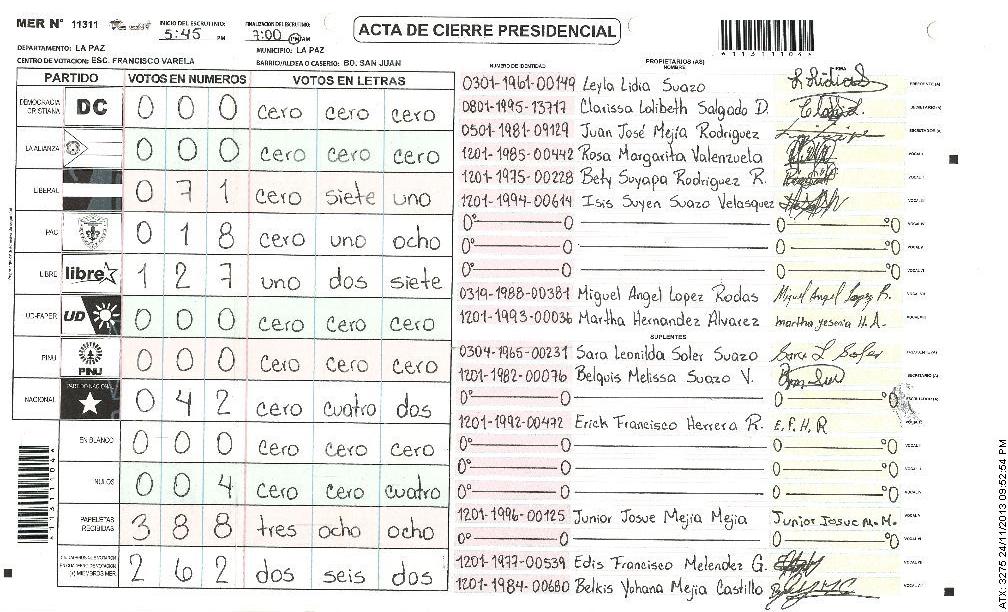 MER N° 11311
INICIO DEL ESCRUTINIO: 5:45 PM
FINALIZACION DEL ESCRUTINIO: 7:00 PM AM
ACTA DE CIERRE PRESIDENCIAL
DEPARTAMENTO: LA PAZ
MUNICIPIO: LA PAZ
CENTRO DE VOTACION: ESC. FRANCISCO VARELA
BARRIO/ALDEA O CASERIO: BO. SAN JUAN
PARTIDO VOTOS EN NUMEROS VOTOS EN LETRAS
DEMOCRACIA CRISTIANA DC 0 0 0 cero cero cero
LA ALIANZA 0 0 0 cero cero cero
LIBERAL 0 7 1 cero siete uno
PAC 0 1 8 cero uno ocho
LIBRE libre 1 2 7 uno dos siete
UD-FAPER UD 0 0 0 cero cero cero
PINU PINU 0 0 0 cero cero cero
NACIONAL PARTIDO NACIONAL 0 4 2 cero cuatro dos
EN BLANCO 0 0 0 cero cero cero
NULOS 0 0 4 cero cero cuatro
PAPELETAS RECIBIDAS 3 8 8 tres ocho ocho
2 6 2 dos seis dos
NUMERO DE IDENTIDAD PROPIETARIOS (AS) NOMBRE FIRMA
0301-1961-00149 Leyla Lidia Suazo
0801-1995-13717 Clarissa Lolibeth Salgado D.
0501-1981-09129 Juan José Mejia Rodriguez
1201-1985-00442 Rosa Margarita Valenzuela
1201-1975-00228 Bety Suyapa Rodriguez R.
1201-1994-00614 Isis Suyen Suazo Velasquez
0319-1988-00381 Miguel Angel Lopez Rodas Miguel Angel Lopez R.
1201-1993-00036 Martha Hernandez Alvarez martha yesenia H.A.
SUPLENTES
0304-1965-00231 Sara Leonilda Soler Suazo Sara L Soler
1201-1982-00076 Belquis Melissa Suazo V.
1201-1992-00472 Erick Francisco Herrera R. E.F.H.R
1201-1996-00125 Junior Josue Mejia Mejia Junior Josue M.M.
1201-1977-00539 Edis Francisco Melendez G.
1201-1984-00680 Belkis Yohana Mejia Castillo
ATX-3275 24/11/2013 09:52:54 PM